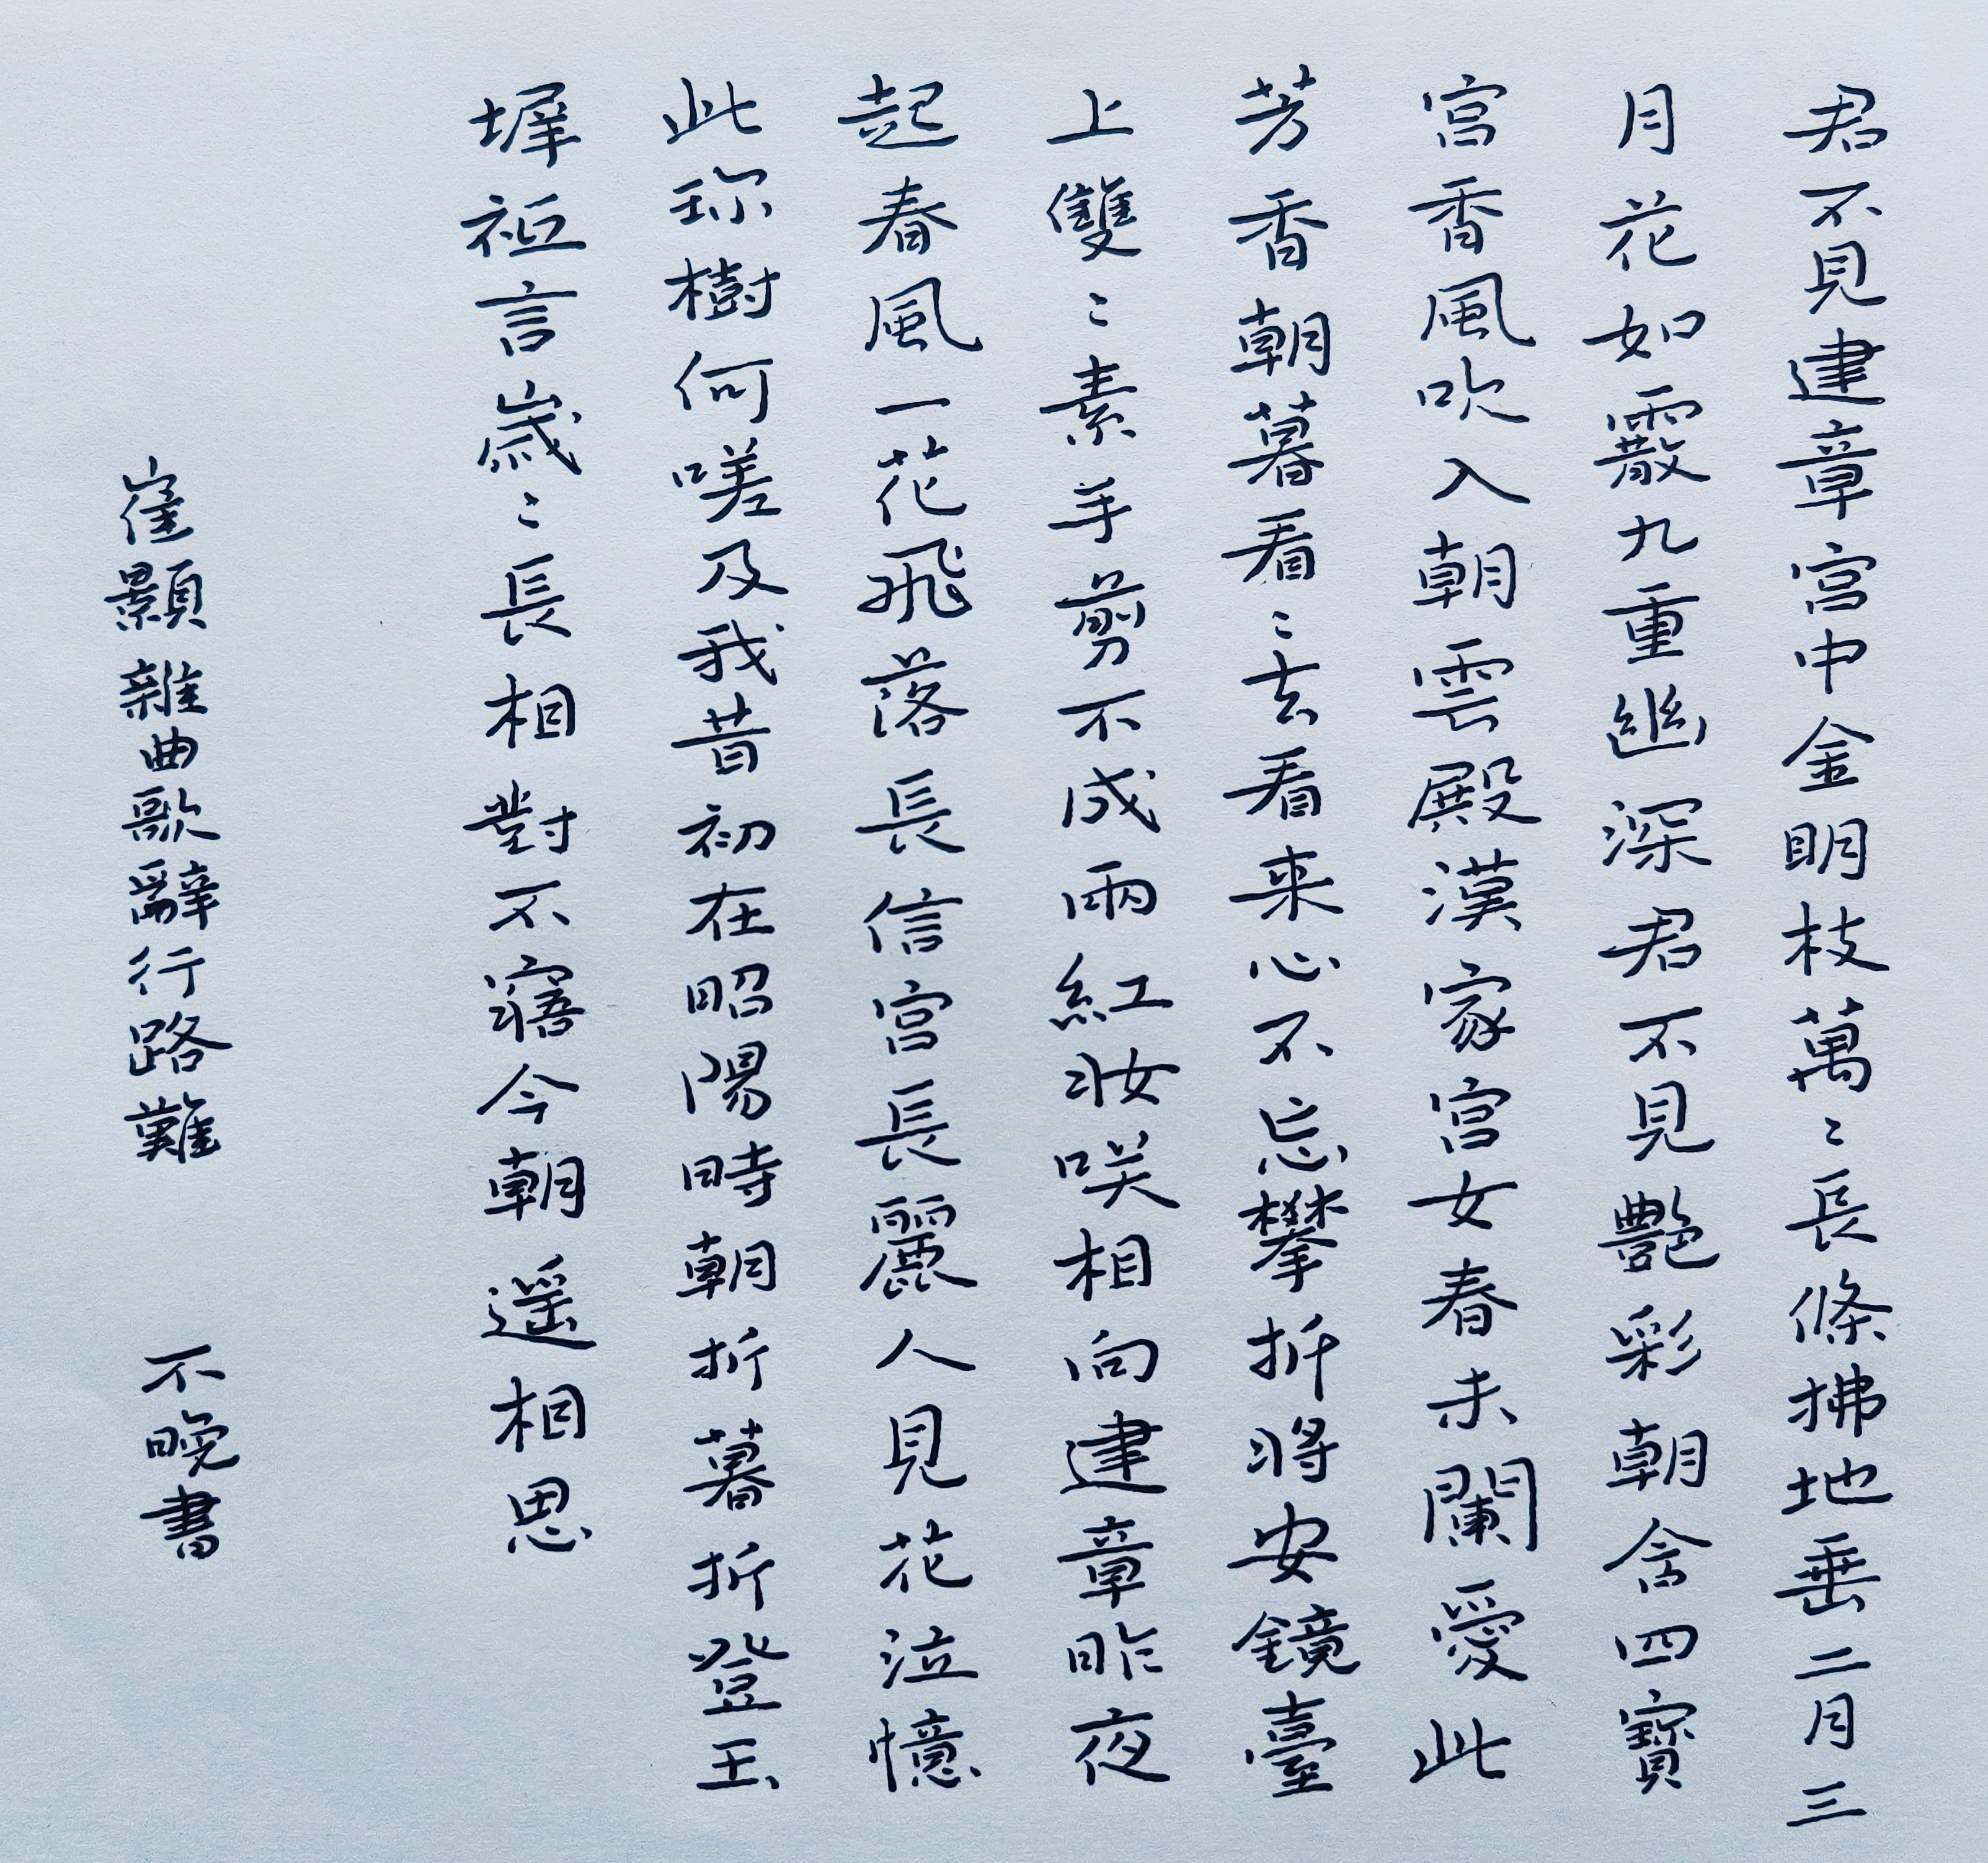 君不見建章宮中金明枝萬〻長條拂地垂二月三
月花如霰九重幽深君不見艷彩朝含四寶
宮香風吹入朝雲殿漢家宮女春未闌愛此
芳香朝暮看看〻去看来心不忘攀折將安鏡臺
上雙〻素手剪不成兩紅妝咲相向建章昨夜
起春風一花飛落長信宮長麗人見花泣憶
此珎樹何嗟及我昔初在昭陽時朝折暮折登玉
墀祗言歲〻長相對不寤今朝遥相思
崔顥雜曲歌辭行路難 不晚書